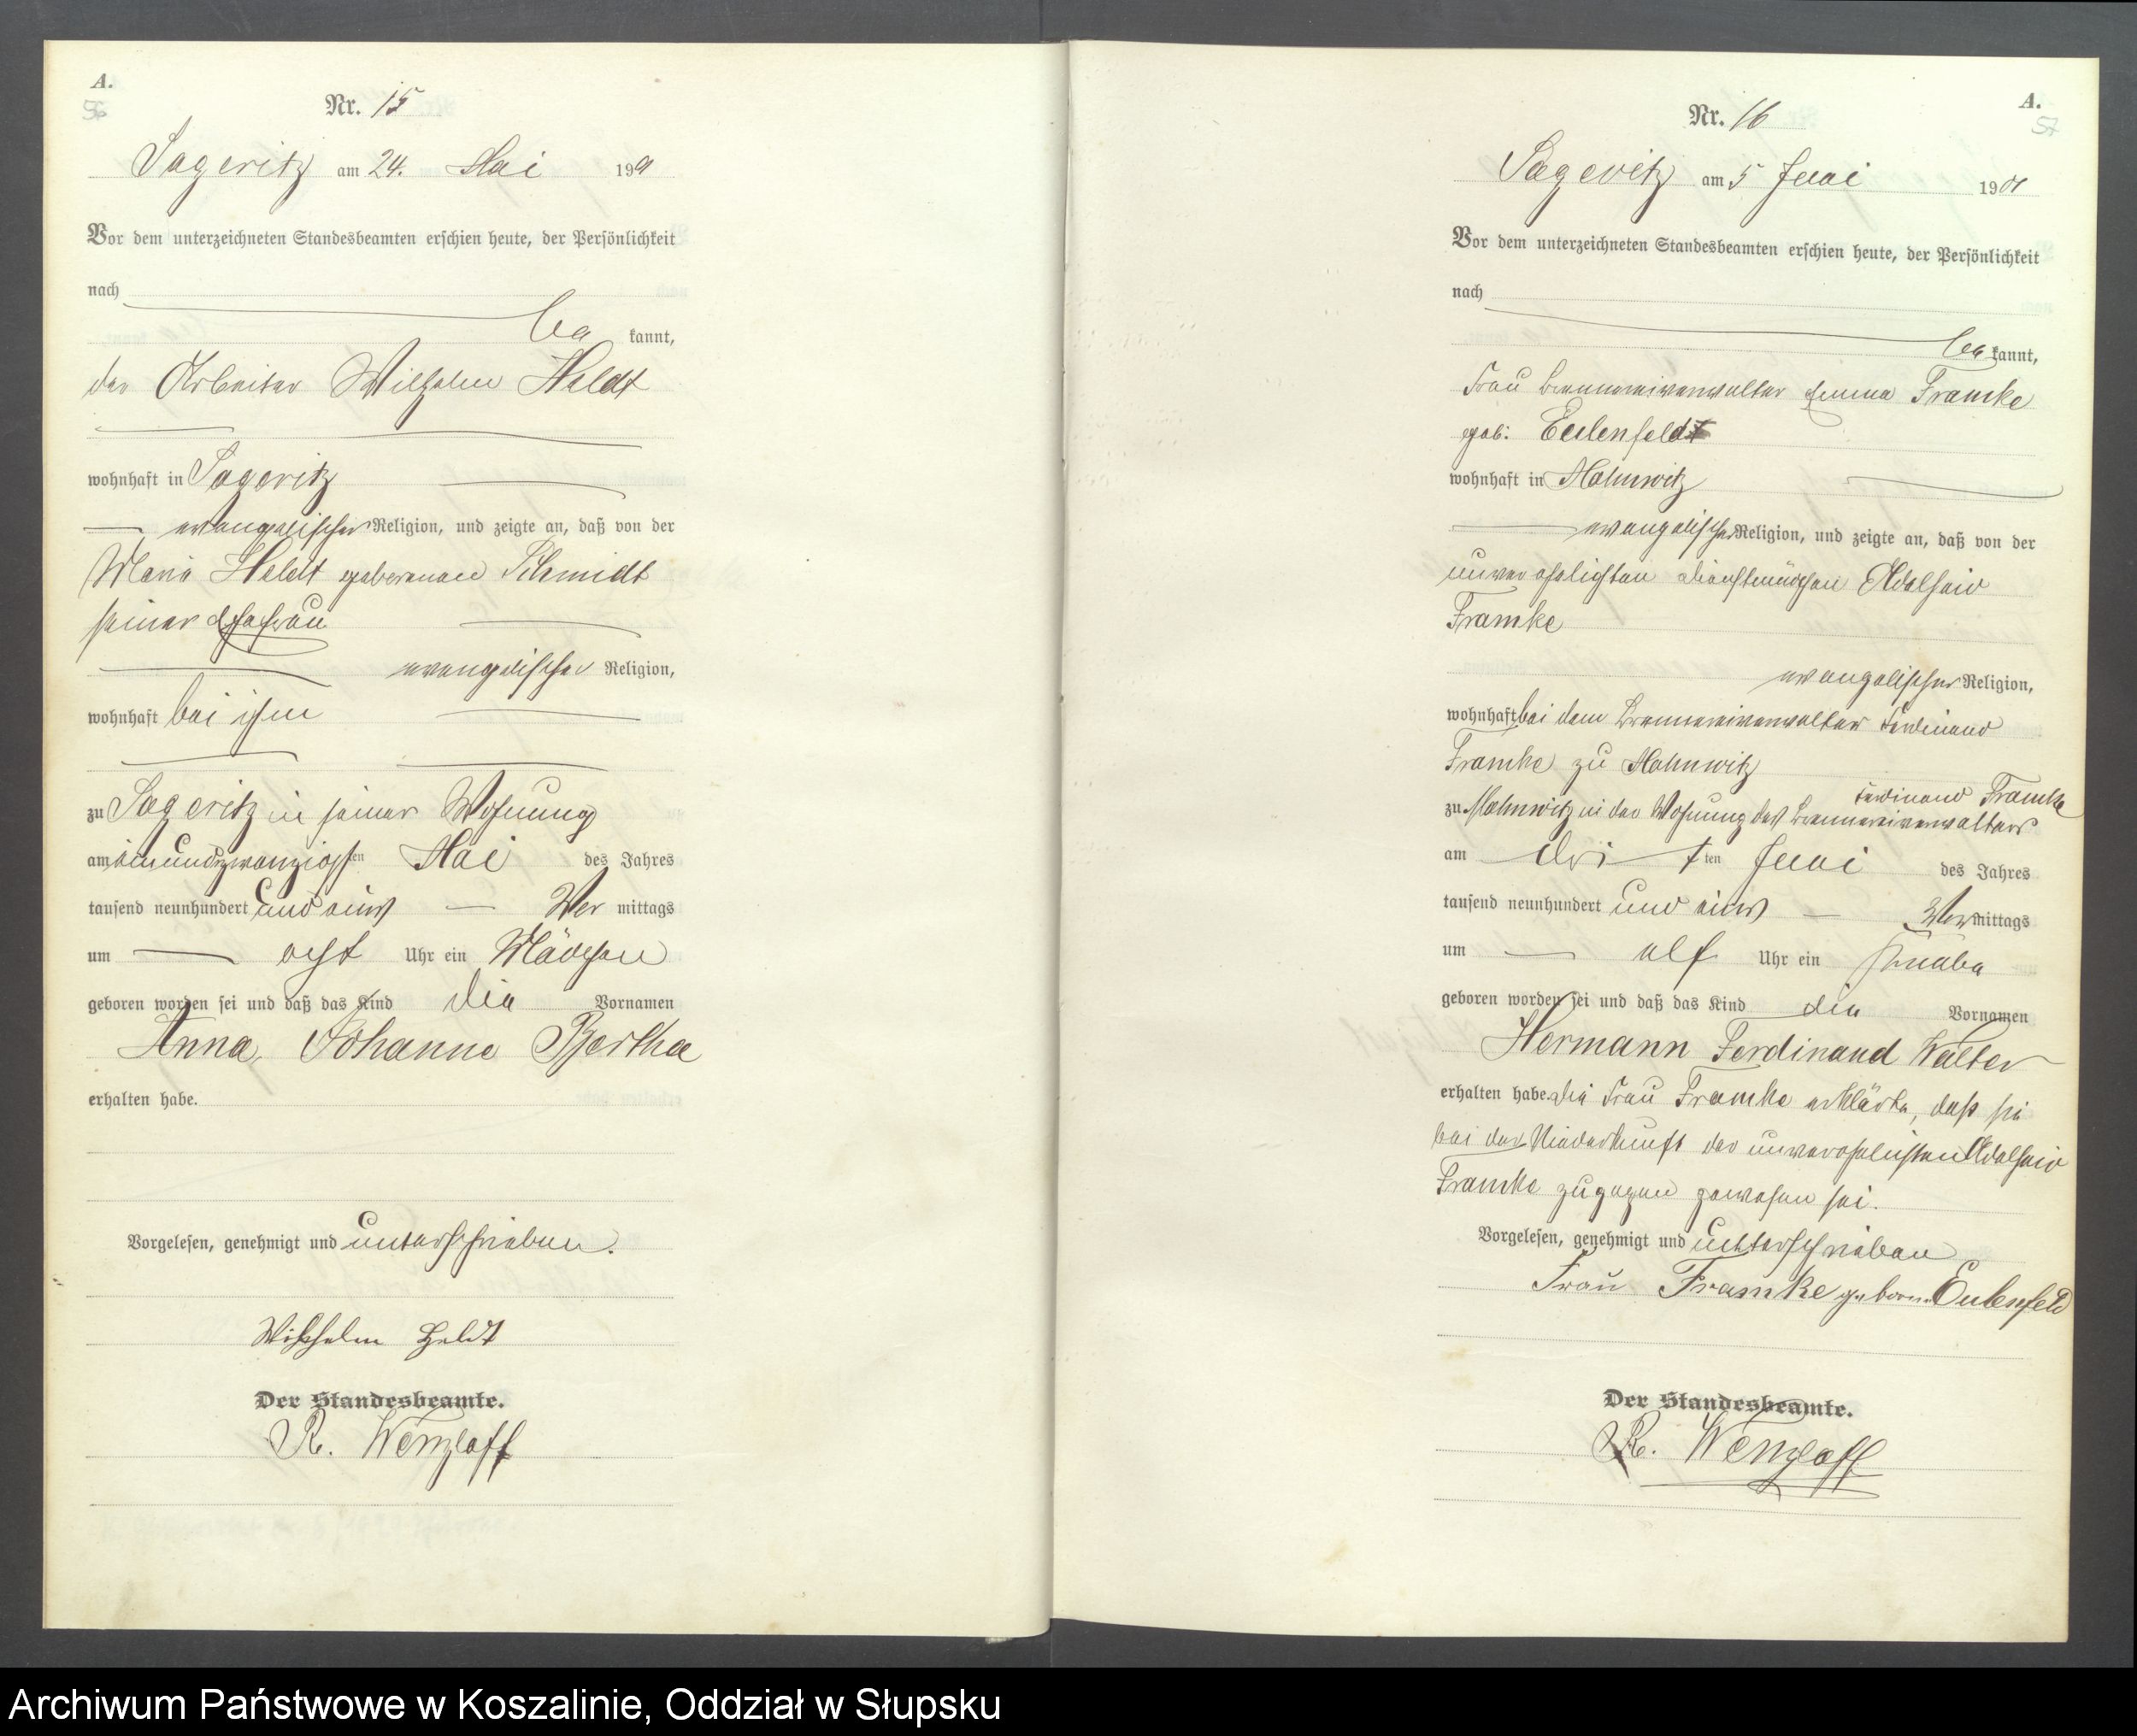 A.
56
Nr. 15
Sageritz am 24. Mai 1901
Vor dem unterzeichneten Standesbeamten erschien heute, der Persönlichkeit
nach
be kannt,
der Arbeiter Wilhelm Heldt
wohnhaft in Sageritz
evangelischer Religion, und zeigte an, daß von der
Marie Heldt geborenen Schmidt
seiner Ehefrau
evangelischer Religion,
wohnhaft bei ihm
zu Sageritz in seiner Wohnung
am einundzwanzigsten Mai des Jahres
tausend neunhundert und eins Vor mittags
um acht Uhr ein Mädchen
geboren worden sei und daß das Kind die Vornamen
Anna, Johanne Bertha
erhalten habe.
Vorgelesen, genehmigt und unterschrieben.
Wilhelm Heldt
Der Standesbeamte.
R. Wenzlaff
A.
57
Nr. 16
Sageritz am 5 Juni 1901
Vor dem unterzeichneten Standesbeamten erschien heute, der Persönlichkeit
nach
be kannt,
Frau Brennereiverwalter Emma Framke
geb. Eulenfeldt
wohnhaft in Mahnwitz
evangelischer Religion, und zeigte an, daß von der
unverehelichten Dienstmädchen Adelheid
Framke
evangelischer Religion,
wohnhaft bei dem Brennereiverwalter Ferdinand
Framke zu Mahnwitz
Ferdinand Framke
zu Mahnwitz in der Wohnung des Brennereiverwalters
am drit ten Juni des Jahres
tausend neunhundert und eins Vor mittags
um elf Uhr ein Knabe
geboren worden sei und daß das Kind die Vornamen
Hermann Ferdinand Walter
erhalten habe. Die Frau Framke erklärte, daß sie
bei der Niederkunft der unverehelichten Adelheid
Framke zugegen gewesen sei.
Vorgelesen, genehmigt und unterschrieben
Frau Framke geboren. Eulenfeld
Der Standesbeamte.
R. Wenzlaff
Archiwum Państwowe w Koszalinie, Oddział w Słupsku